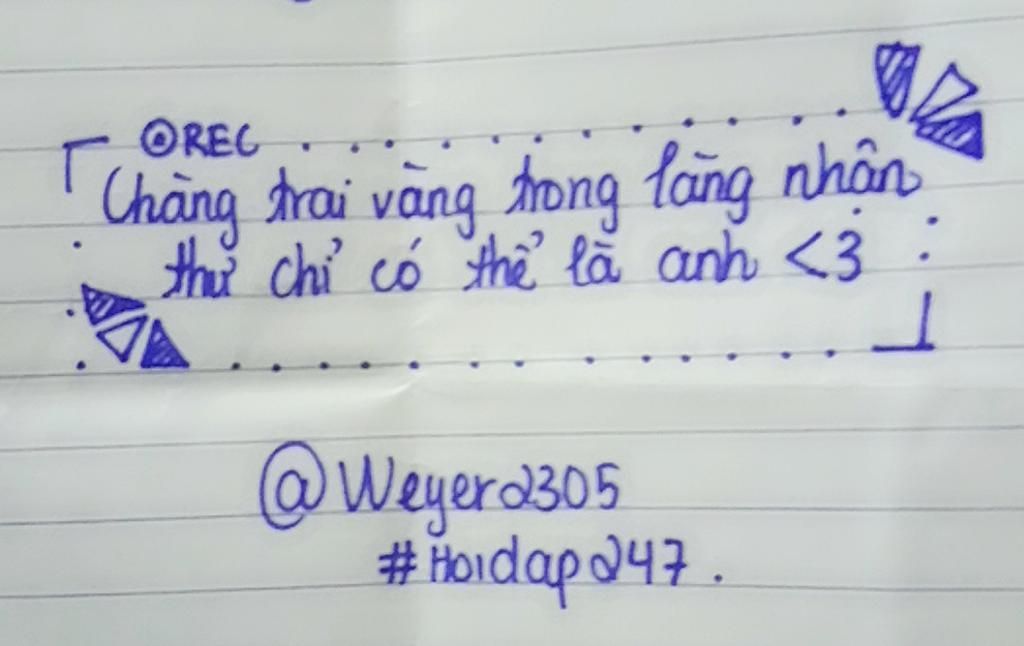 REC
Chàng trai vàng trong làng nhân
thư chỉ có thể là anh <3
@Weyer2305
#Hoidap247.